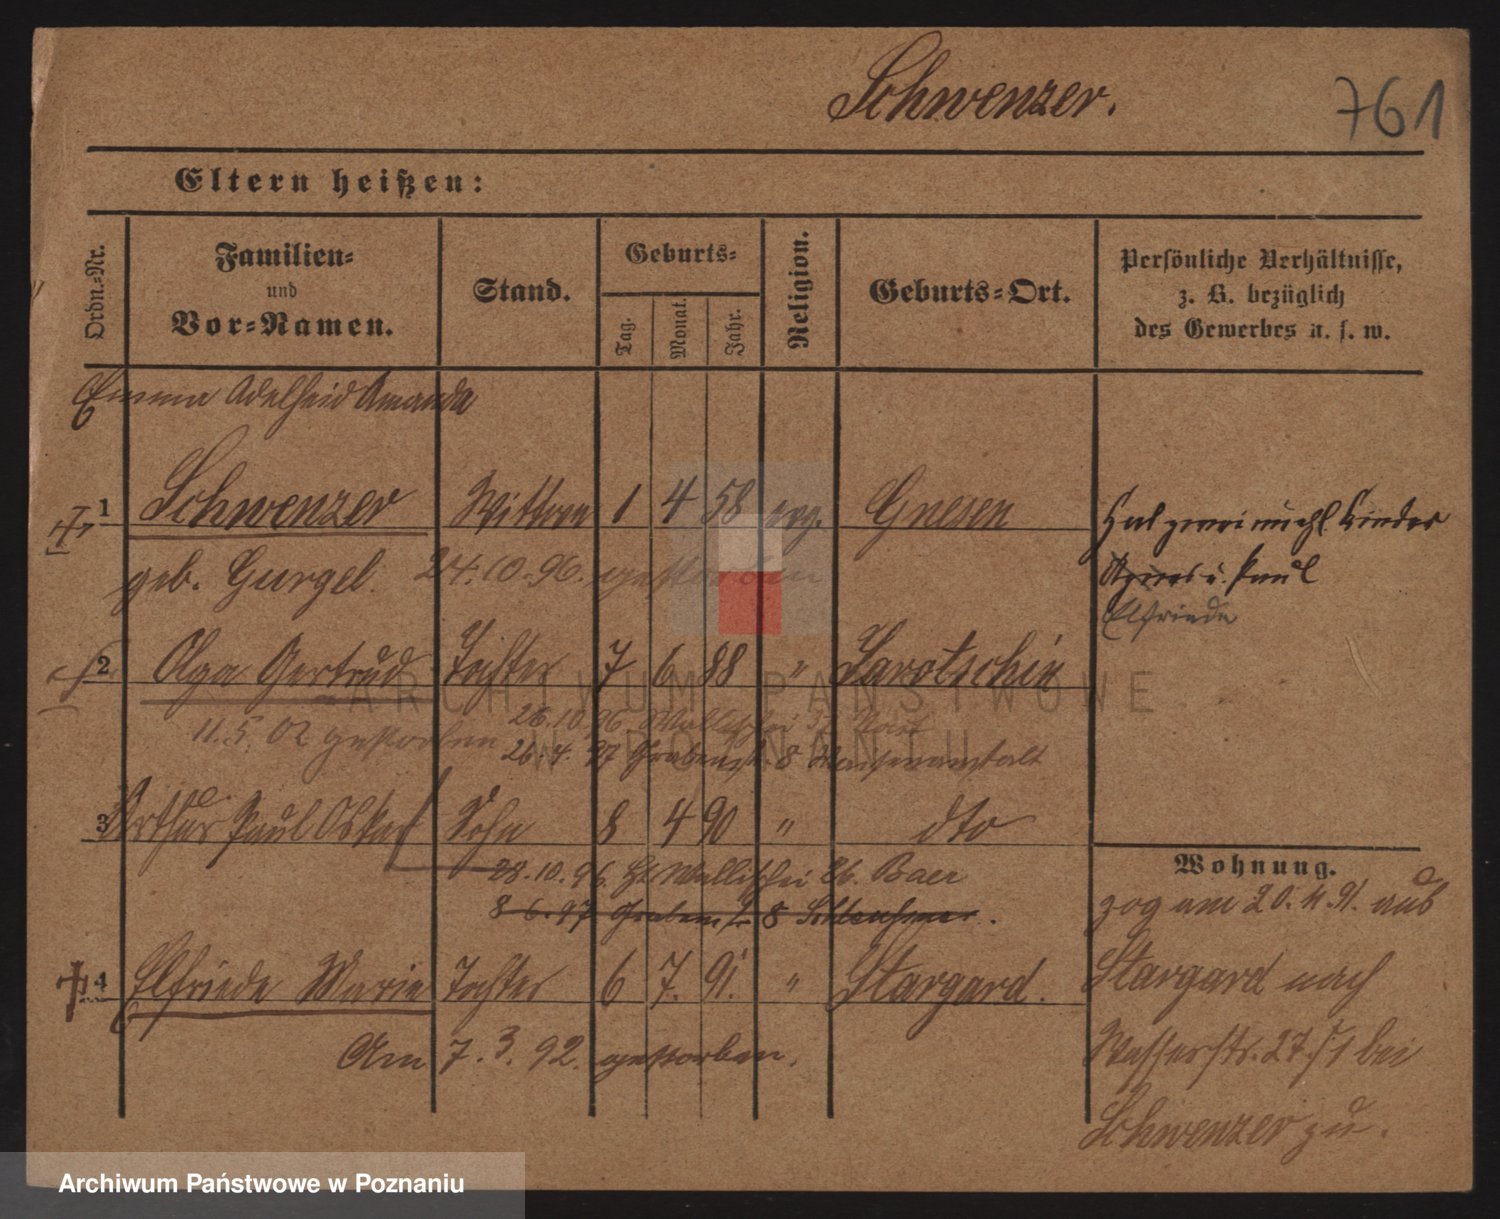 Schwenzer.
761
Eltern heißen:
Ordn.-Nr.
Familien-
und
Vor-Namen.
Stand.
Geburts-
Tag.
Monat.
Jahr.
Religion.
Geburts-Ort.
Persönliche Verhältnisse,
z. B. bezüglich
des Gewerbes u. s. w.
Emma Adelheid Amanda
1 Schwenzer Wittwe 1 4 58 evg. Gnesen
geb. Gurgel. 24.10.96. gestorben
Hat zwei Kinder
u. Paul
Elfriede
2 Olga Gertrud Tochter 7 6 88 " Jarotschin
11.5.02 gestorben
26.10.96 Wallischei
26.4.97 Grabenstr. 8 Waisenanstalt
3 Arthur Paul Oskar Sohn 8 4 90 " dto
28.10.96. Wallischei 26. Baer
8 6.97 Grabenstr 8
4 Elfriede Marie Tochter 6 7. 91. " Stargard.
Am 7.3.92. gestorben.
Wohnung.
zog am 20.11.91. aus
Stargard nach
Wasserstr. 27/1 bei
Schwenzer zu.
ARCHIWUM PAŃSTWOWE
W POZNANIU
Archiwum Państwowe w Poznaniu